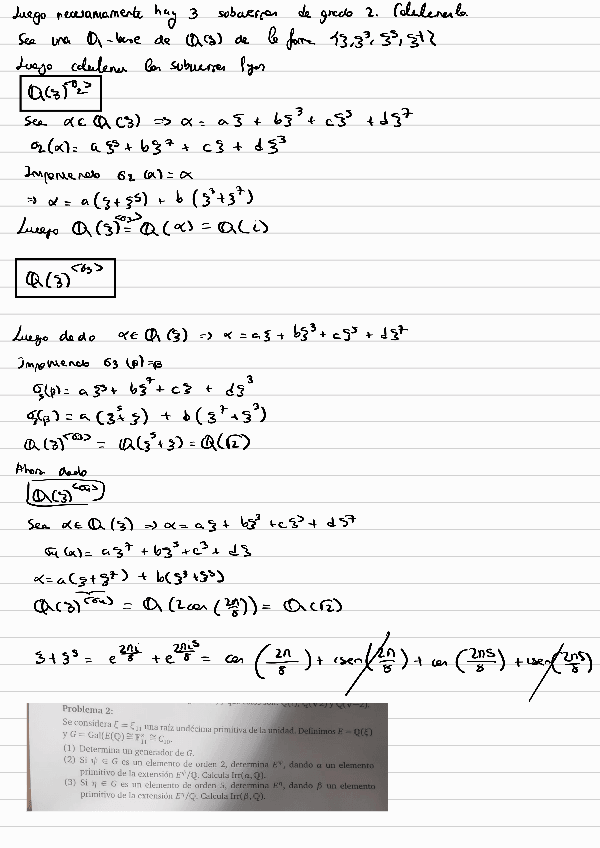 Luego necesariamente hay 3 subcuerpos de grado 2. Calculemoslo.
Sea una Q-base de Q(ξ) de la forma {ξ, ξ³, ξ⁵, ξ⁷}
Luego calculemos los subcuerpos fijos
Q(ξ)^<σ₂>
Sea α ∈ Q(ξ) ⇒ α = aξ + bξ³ + cξ⁵ + dξ⁷
σ₂(α) = aξ⁵ + bξ⁷ + cξ + dξ³
Imponiendo σ₂(α) = α
⇒ α = a(ξ + ξ⁵) + b(ξ³ + ξ⁷)
Luego Q(ξ)^<σ₂> = Q(α) = Q(i)
Q(ξ)^<σ₃>
Luego dado α ∈ Q(ξ) ⇒ α = aξ + bξ³ + cξ⁵ + dξ⁷
Imponiendo σ₃(β) = β
σ₃(β) = aξ⁵ + bξ⁷ + cξ + dξ³
σ₃(β) = a(ξ⁵ + ξ) + b(ξ⁷ + ξ³)
Q(ξ)^<σ₃> = Q(ξ⁵ + ξ) = Q(√2)
Ahora dado
Q(ξ)^<σ₄>
Sea α ∈ Q(ξ) ⇒ α = aξ + bξ³ + cξ⁵ + dξ⁷
σ₄(α) = aξ⁷ + bξ⁵ + c³ + dξ
α = a(ξ + ξ⁷) + b(ξ³ + ξ⁵)
Q(ξ)^<σ₄> = Q(2cos(2π/8)) = Q(√2)
ξ + ξ⁵ = e^(2πi/8) + e^(2πi5/8) = cos(2π/8) + isen(2π/8) + cos(2π5/8) + isen(2π5/8)
Problema 2:
Se considera ξ = ξ₁₁ una raíz undécima primitiva de la unidad. Definimos E = Q(ξ)
y G = Gal(E/Q) ≅ F₁₁* ≅ C₁₀.
(1) Determina un generador de G.
(2) Si ψ ∈ G es un elemento de orden 2, determina E^ψ, dando α un elemento
primitivo de la extensión E^ψ/Q. Calcula Irr(α, Q).
(3) Si η ∈ G es un elemento de orden 5, determina E^η, dando β un elemento
primitivo de la extensión E^η/Q. Calcula Irr(β, Q).